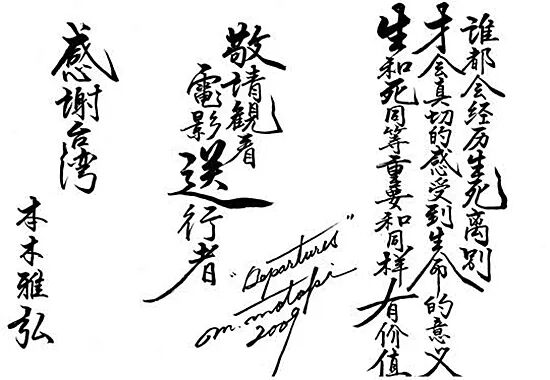 谁都会经历生死离别
才会真切的感受到生命的意义
生和死同等重要和同样有价值
敬請観看
電影送行者
"Departures"
m. motoki
2009
感謝台湾
本木雅弘